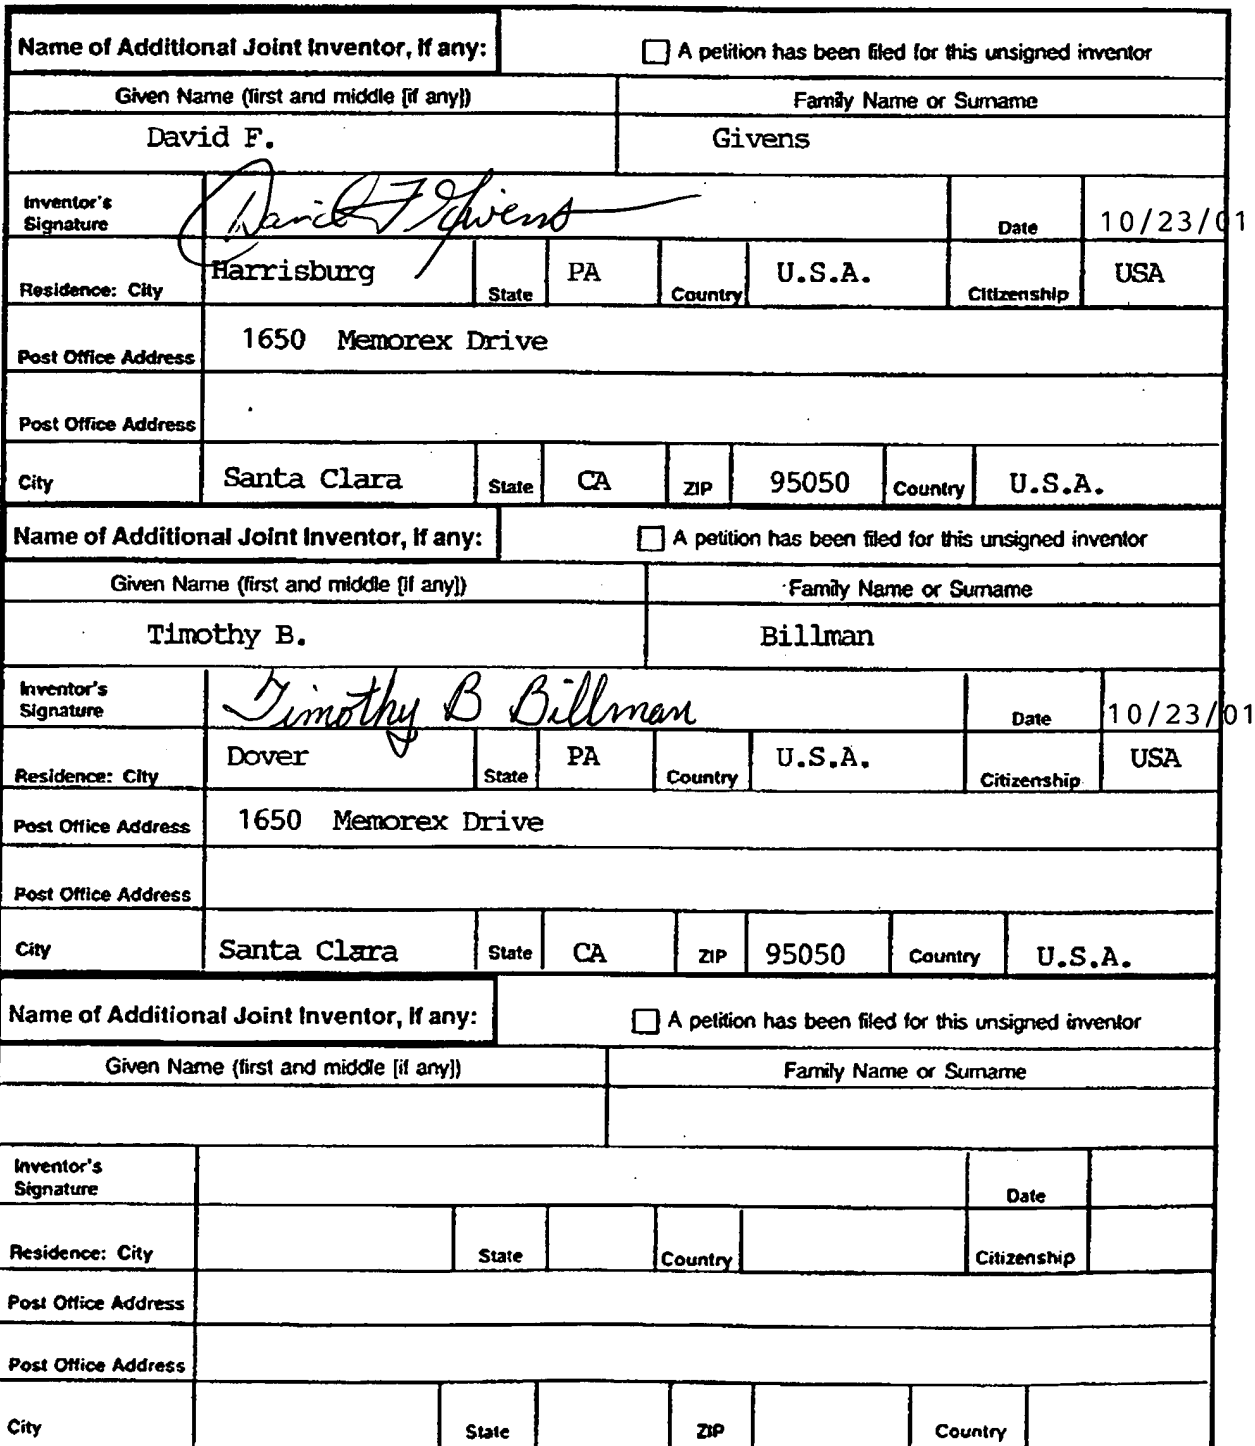 Name of Additional Joint Inventor, if any: A petition has been filed for this unsigned inventor
Given Name (first and middle [if any]) Family Name or Surname
David F. Givens
Inventor's
Signature David F Givens Date 10/23/01
Residence: City Harrisburg State PA Country U.S.A. Citizenship USA
Post Office Address 1650 Memorex Drive
Post Office Address
City Santa Clara State CA ZIP 95050 Country U.S.A.
Name of Additional Joint Inventor, if any: A petition has been filed for this unsigned inventor
Given Name (first and middle [if any]) Family Name or Surname
Timothy B. Billman
Inventor's
Signature Timothy B Billman Date 10/23/01
Residence: City Dover State PA Country U.S.A. Citizenship USA
Post Office Address 1650 Memorex Drive
Post Office Address
City Santa Clara State CA ZIP 95050 Country U.S.A.
Name of Additional Joint Inventor, if any: A petition has been filed for this unsigned inventor
Given Name (first and middle [if any]) Family Name or Surname
Inventor's
Signature Date
Residence: City State Country Citizenship
Post Office Address
Post Office Address
City State ZIP Country